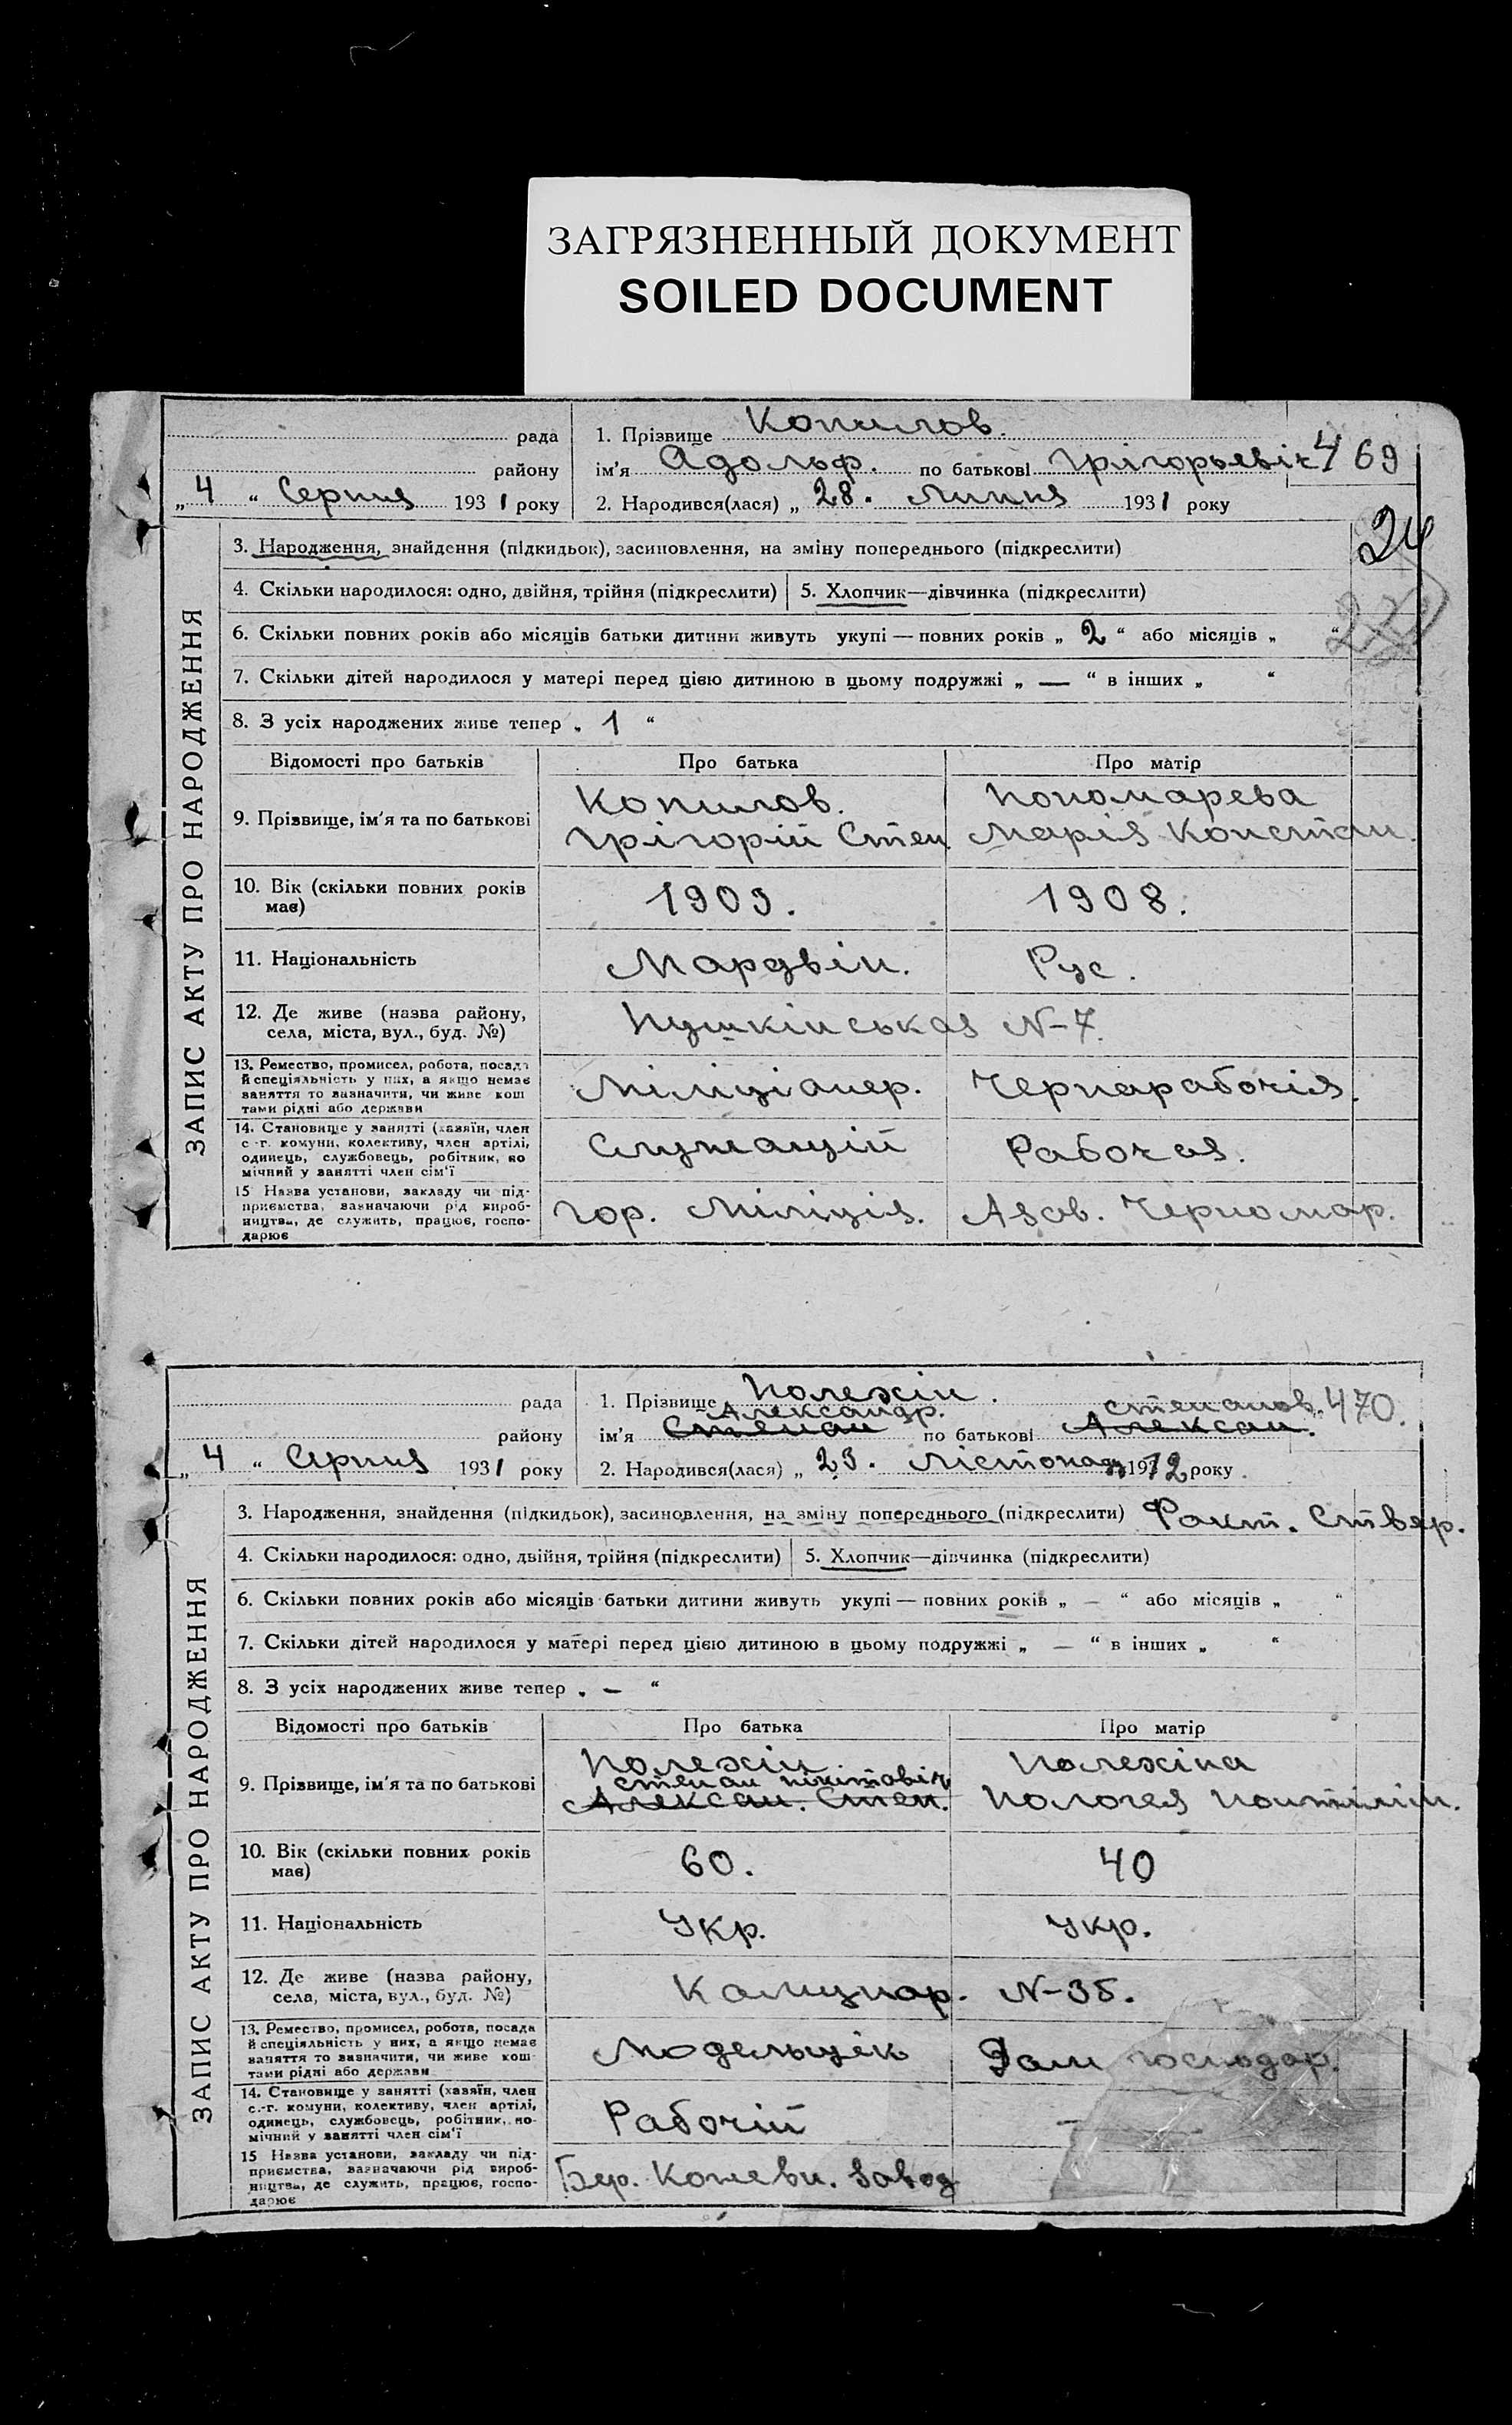 ЗАГРЯЗНЕННЫЙ ДОКУМЕНТ
SOILED DOCUMENT
рада
району
„ 4 “ Серпня 1931 року
1. Прізвище Копилов.
ім’я Адольф. по батькові Грігорьевіч 469
2. Народився(лася) „ 28. Липня 1931 року
24
ЗАПИС АКТУ ПРО НАРОДЖЕННЯ
3. Народження, знайдення (підкидьок), засиновлення, на зміну попереднього (підкреслити)
4. Скільки народилося: одно, двійня, трійня (підкреслити) 5. Хлопчик—дівчинка (підкреслити)
6. Скільки повних років або місяців батьки дитини живуть укупі — повних років „ 2 “ або місяців „ “
7. Скільки дітей народилося у матері перед цією дитиною в цьому подружжі „ — “ в інших „ “
8. З усіх народжених живе тепер „ 1 “
Відомості про батьків Про батька Про матір
9. Прізвище, ім’я та по батькові
Копилов. Пономарева
Грігорій Степ. Марія Констан.
10. Вік (скільки повних років має) 1909. 1908.
11. Національність Мардвін. Рус.
12. Де живе (назва району, села, міста, вул., буд. №) Пушкінськая N-7.
13. Ремество, промисел, робота, посада
й спеціяльність у них, а якщо немає
заняття то зазначити, чи живе кош
тами рідні або держави
Міліціанер. Чернарабочія.
14. Становище у занятті (хазяїн, член
с.-г. комуни, колективу, член артілі,
одинець, службовець, робітник, по
мічний у занятті член сім’ї
Служащій Рабочая.
15 Назва установи, закладу чи під-
приємства, зазначаючи рід вироб-
ництва, де служить, працює, госпо-
дарює
Гор. Міліція. Азов. Черномор.
рада
району
„ 4 “ Серпня 1931 року
1. Прізвище Полехін.
Александр. степанов. 470.
ім’я Степан по батькові Алексан.
2. Народився(лася) „ 23. Лістопад 1912 року
ЗАПИС АКТУ ПРО НАРОДЖЕННЯ
3. Народження, знайдення (підкидьок), засиновлення, на зміну попереднього (підкреслити) Факт. Ствер.
4. Скільки народилося: одно, двійня, трійня (підкреслити) 5. Хлопчик—дівчинка (підкреслити)
6. Скільки повних років або місяців батьки дитини живуть укупі — повних років „ — “ або місяців „ “
7. Скільки дітей народилося у матері перед цією дитиною в цьому подружжі „ — “ в інших „ “
8. З усіх народжених живе тепер „ — “
Відомості про батьків Про батька Про матір
9. Прізвище, ім’я та по батькові
Полехін Полехіна
степан нікітовіч
Алексан. Степ. Пологея
10. Вік (скільки повних років має) 60. 40
11. Національність Укр. Укр.
12. Де живе (назва району, села, міста, вул., буд. №) Камунар. N-36.
13. Ремество, промисел, робота, посада
й спеціяльність у них, а якщо немає
заняття то зазначити, чи живе кош
тами рідні або держави
Модельщік Дам господар.
14. Становище у занятті (хазяїн, член
с.-г. комуни, колективу, член артілі,
одинець, службовець, робітник, по-
мічний у занятті член сім’ї
Рабочій —
15 Назва установи, закладу чи під-
приємства, зазначаючи рід вироб-
ництва, де служить, працює, госпо-
дарює
Бер. Кожевн. завод